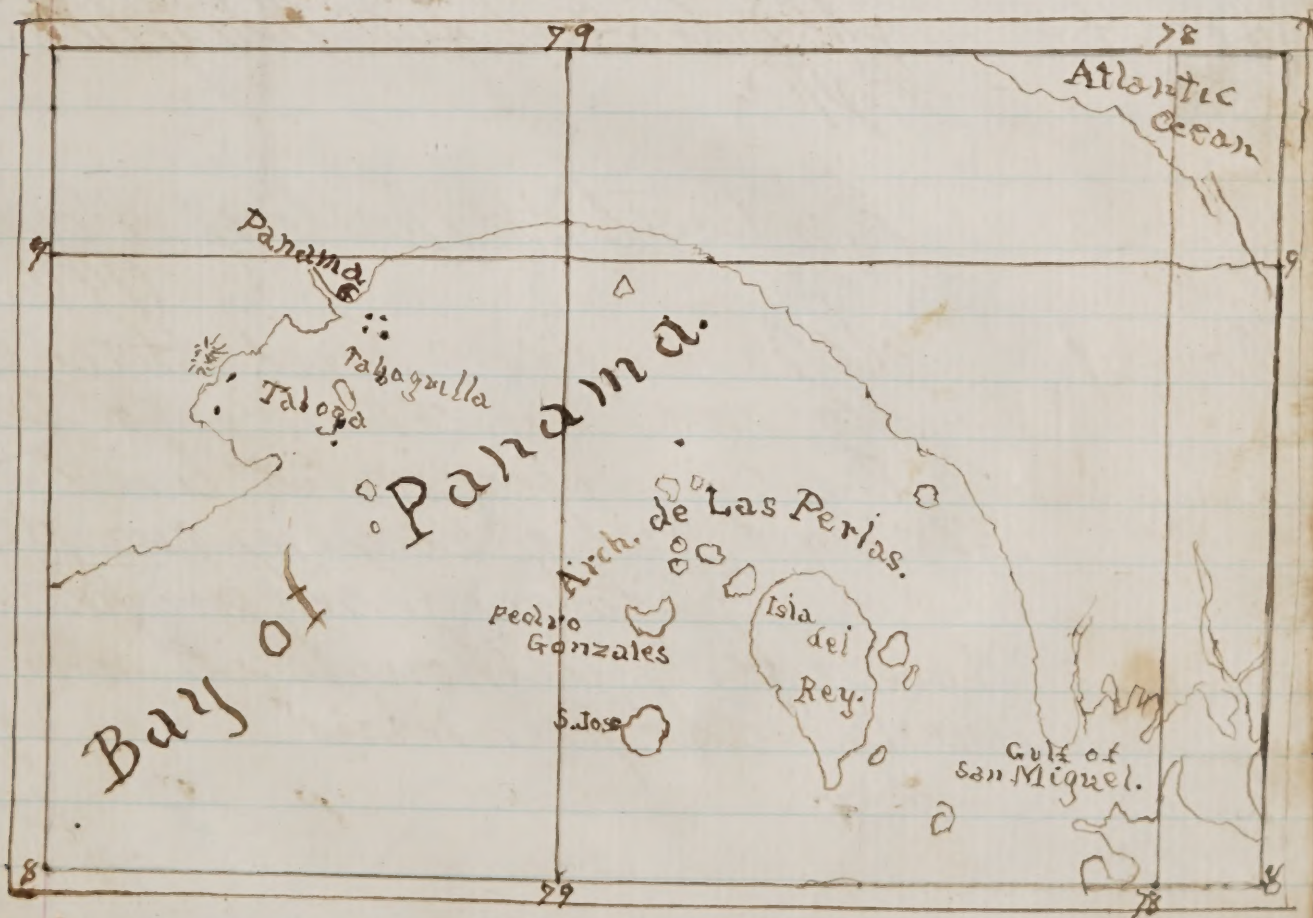 79 78
Atlantic
Ocean
Panama
9 9
Tabaguilla
Taboga
Bay of Panama.
Arch. de Las Perlas.
Pedro
Gonzales
Isla
del
Rey.
S. Jose
Gulf of
San Miguel.
8 8
79 78